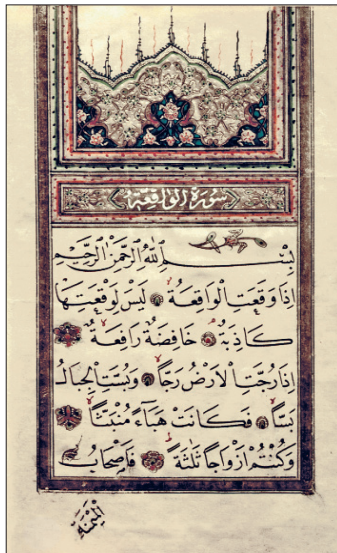 سُورَةُ الْوَاقِعَةِ
بِسْمِ اللّٰهِ الرَّحْمٰنِ الرَّحِيمِ
اِذَا وَقَعَتِ الْوَاقِعَةُ لَيْسَ لِوَقْعَتِهَا
كَاذِبَةٌ خَافِضَةٌ رَافِعَةٌ
اِذَا رُجَّتِ الْاَرْضُ رَجًّا وَبُسَّتِ الْجِبَالُ
بَسًّا فَكَانَتْ هَبَاءً مُنْبَثًّا
وَكُنْتُمْ اَزْوَاجًا ثَلٰثَةً فَاَصْحَابُ
الْمَيْمَنَةِ